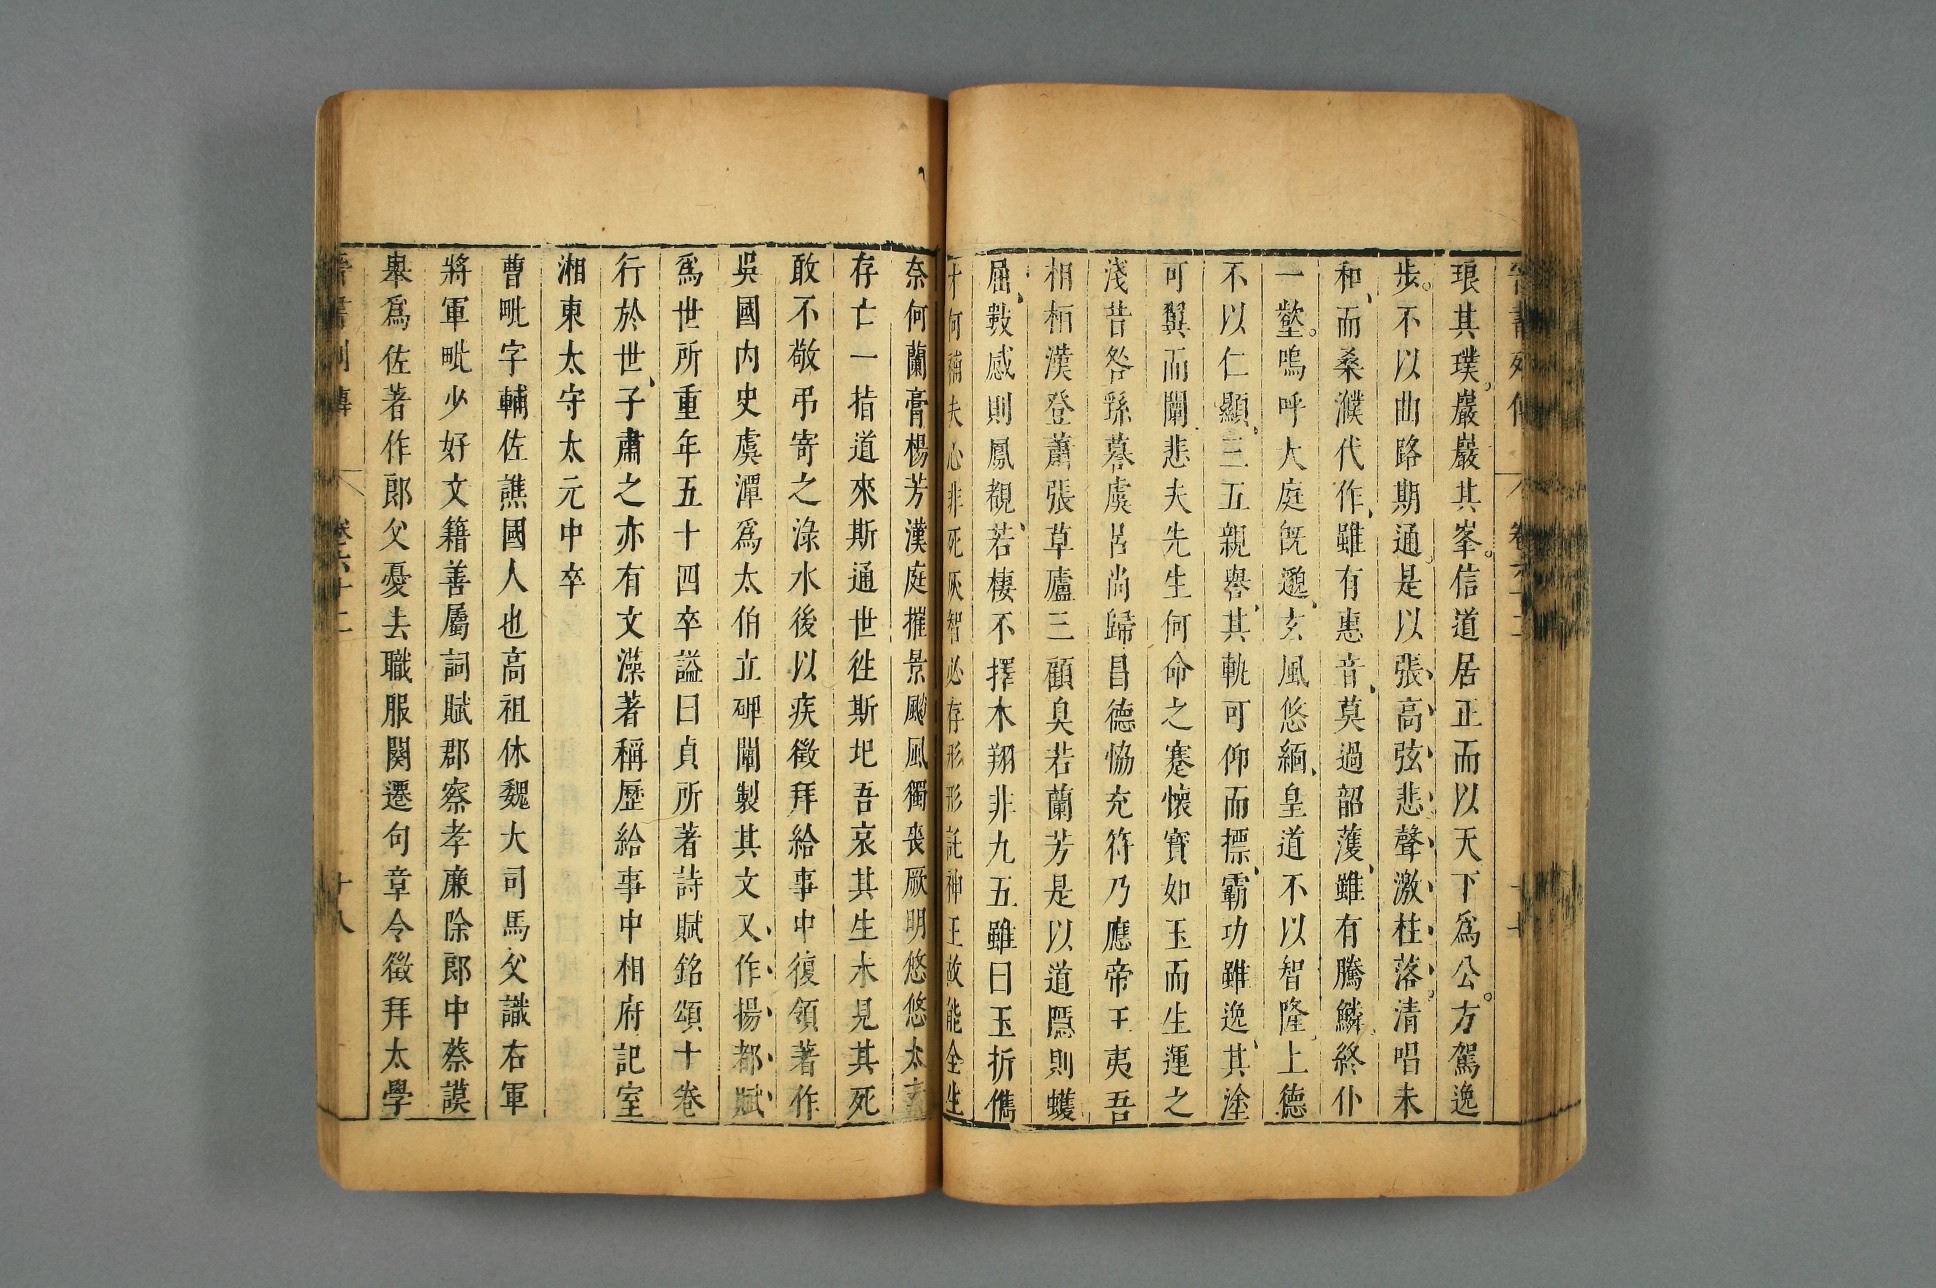 晉書列傳 卷六十二 十七
琅其璞巖巖其峯信道居正而以天下爲公方駕逸
步不以曲路期通是以張高弦悲聲激柱落清唱未
和而桑濮代作雖有惠音莫過韶䕶雖有騰鱗終仆
一壑嗚呼大庭旣邈玄風悠緬皇道不以智隆上德
不以仁顯三五親譽其軌可仰而摽霸功雖逸其塗
可翼而闡悲夫先生何命之蹇懷寶如玉而生運之
淺昔咎繇謩虞呂尚歸昌德恊充符乃應帝王夷吾
相桓漢登蕭張草廬三顧臭若蘭芳是以道隱則蠖
屈數感則鳳覩若棲不擇木翔非九五雖曰玉折儁
才何補夫心非死灰智必存形形託神王故能全生
奈何蘭膏楊芳漢庭摧景颷風獨喪厥明悠悠太素
存亡一指道來斯通世徃斯圯吾哀其生未見其死
敢不敬弔寄之淥水後以疾徵拜給事中復領著作
吳國內史虞潭爲太伯立碑闡製其文又作揚都賦
爲世所重年五十四卒謚曰貞所著詩賦銘頌十卷
行於世子肅之亦有文藻著稱歷給事中相府記室
湘東太守太元中卒
曹毗字輔佐譙國人也高祖休魏大司馬父識右軍
將軍毗少好文籍善屬詞賦郡察孝廉除郎中蔡謨
舉爲佐著作郎父憂去職服闋遷句章令徵拜太學
晉書列傳 卷六十二 十八